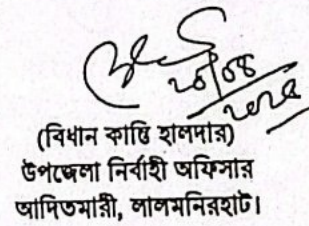 (বিধান কান্তি হালদার)
উপজেলা নির্বাহী অফিসার
আদিতমারী, লালমনিরহাট।